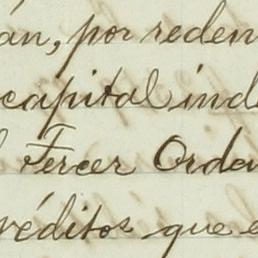 án, por reden
capital ind
l Tercer Orden
réditos que e